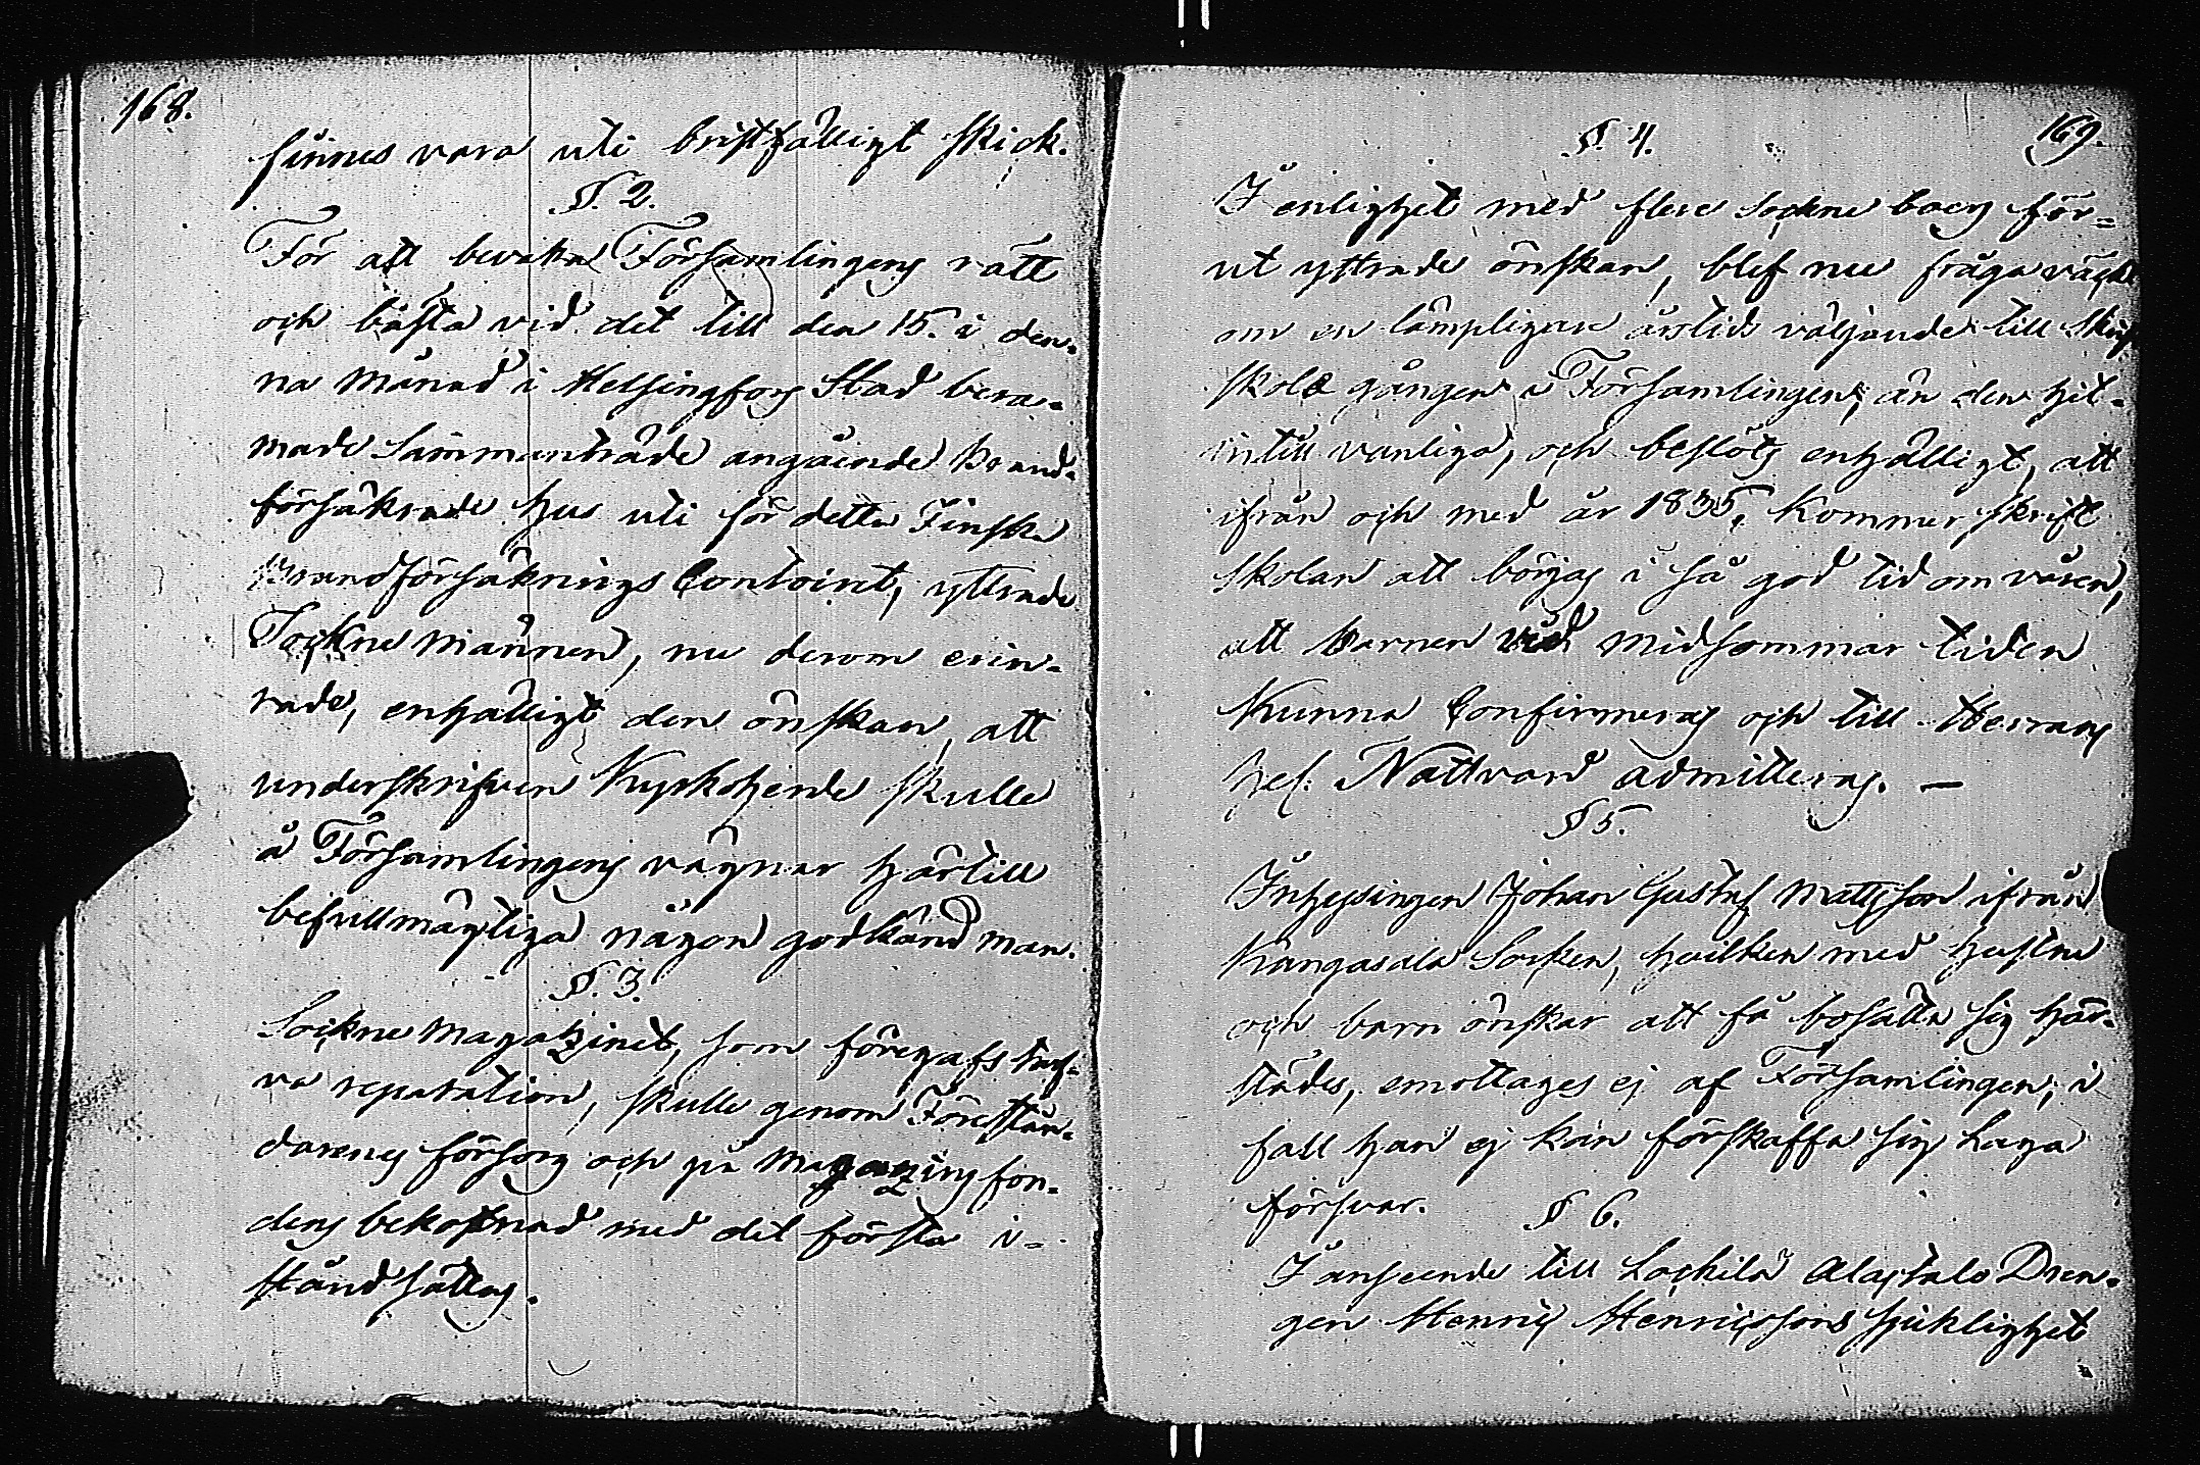 168.
finnes vara uti bristfälligt skick.
§. 2.
För att bevaka Församlingens rätt
och bästa vid det till den 15. i den-
na månad i Helsingfors Stad bera-
made Sammanträde angående Brand-
försäkrade hus uti för detta Finska
Brandförsäknings Contoirt, yttrade
Sockne männen, nu derom erin-
rade, enhälligt den önskan, att
underskrifven Kyrkoherde skulle
å Församlingens vägnar härtill
befullmägtiga någon godkänd man.
§. 3.
Sockne Magatzinet, som föregafs tarf-
va reparation, skulle genom Förestån-
darens försorg och på Magazins fon-
dens bekostnad med det första i-
stånd sättas.
169.
§. 4.
I enlighet med flere Sockne boers för-
ut yttrade önskan, blef nu fråga väckt
om en lämpligare årstids väljande till Skrift
skole gången i Församlingen, än den hit-
intill vanliga, och beslöts enhälligt, att
ifrån och med år 1835, kommer skrift
skolan att börjas i så god tid om våren,
att barnen vid midsommar tiden
kunna Confirmeras och till Herrans
hel. Nattvard admitteras. —
§ 5.
Inhysingen Johan Gustaf Mattsson ifrån
Kangasala Socken, hvilken med hustru
och barn önskar att få bosätta sig här-
städes, emottages ej af Församlingen, i
fall han ej kan förskaffa sig Laga
försvar.
§ 6.
I anseende till Lockila Alastalo Dren-
gen Henric Henricssons sjuklighet